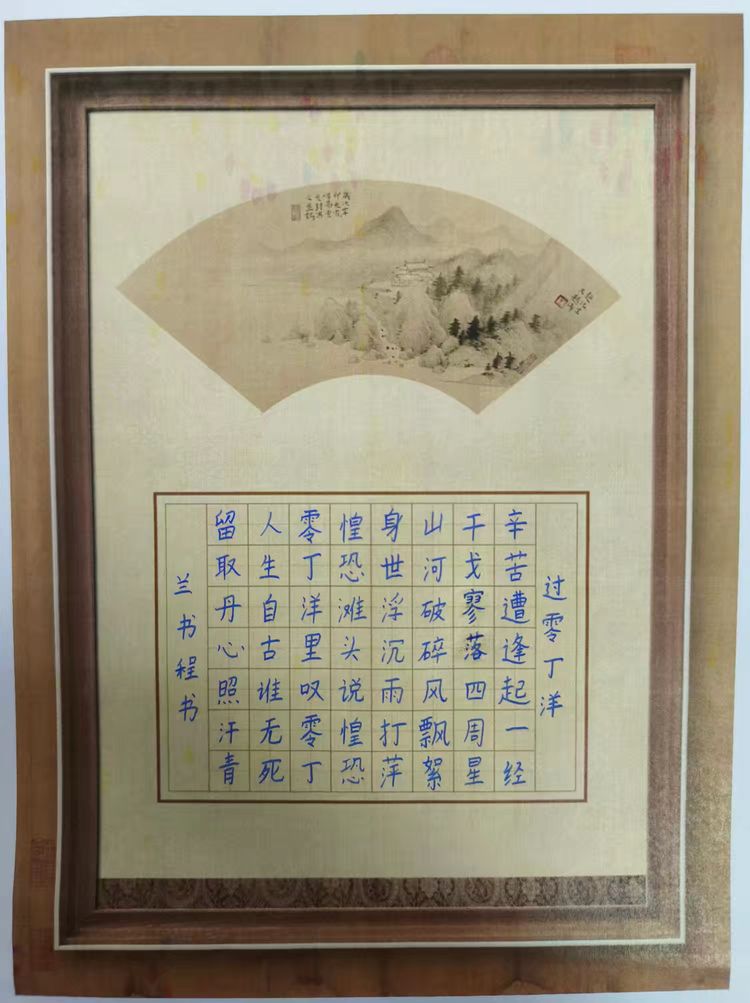 过零丁洋
辛苦遭逢起一经
干戈寥落四周星
山河破碎风飘絮
身世浮沉雨打萍
惶恐滩头说惶恐
零丁洋里叹零丁
人生自古谁无死
留取丹心照汗青
兰书程书